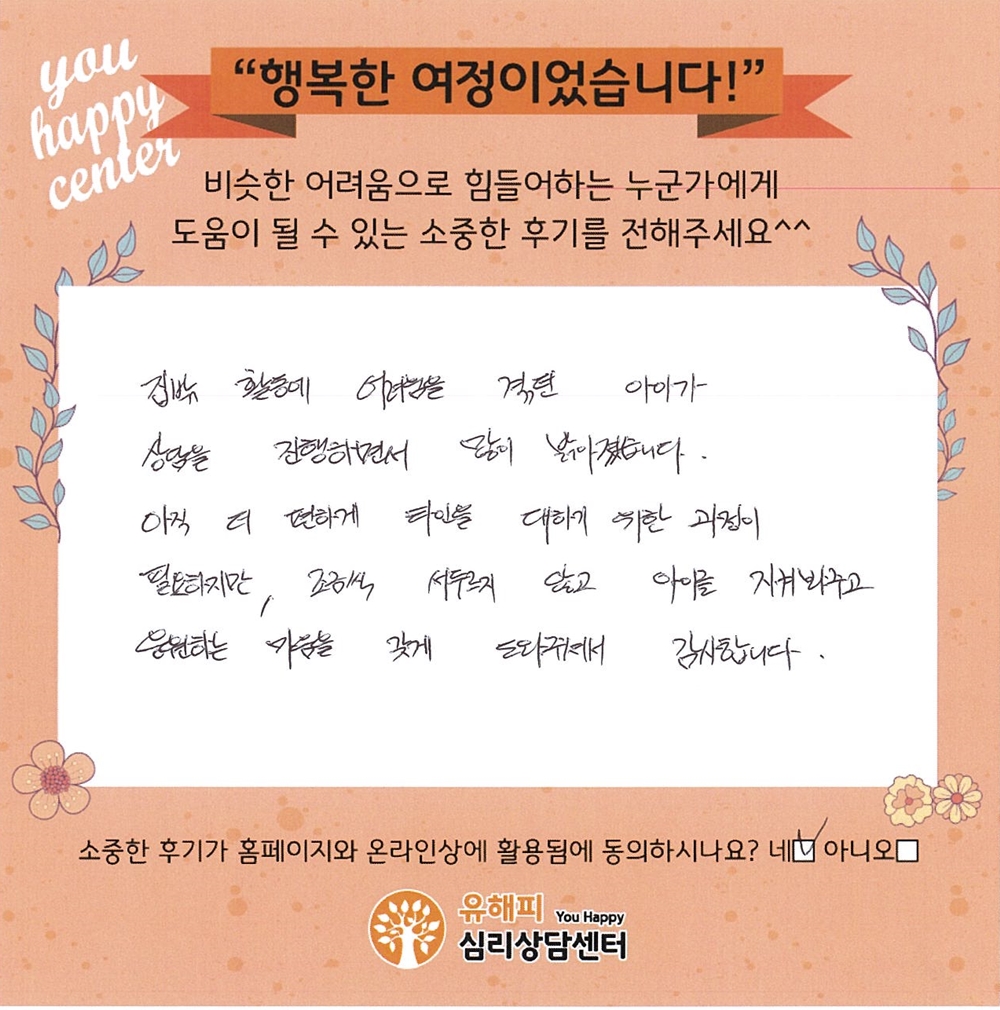 you
happy
center
“행복한 여정이었습니다!”
비슷한 어려움으로 힘들어하는 누군가에게
도움이 될 수 있는 소중한 후기를 전해주세요^^
집밖 활동에 어려움을 겪던 아이가
상담을 진행하면서 많이 밝아졌습니다.
아직 더 편하게 타인을 대하기 위한 과정이
필요하지만, 조금씩 서두르지 않고 아이를 지켜봐주고
응원하는 마음을 갖게 도와주셔서 감사합니다.
소중한 후기가 홈페이지와 온라인상에 활용됨에 동의하시나요? 네☑ 아니오☐
유해피 You Happy
심리상담센터